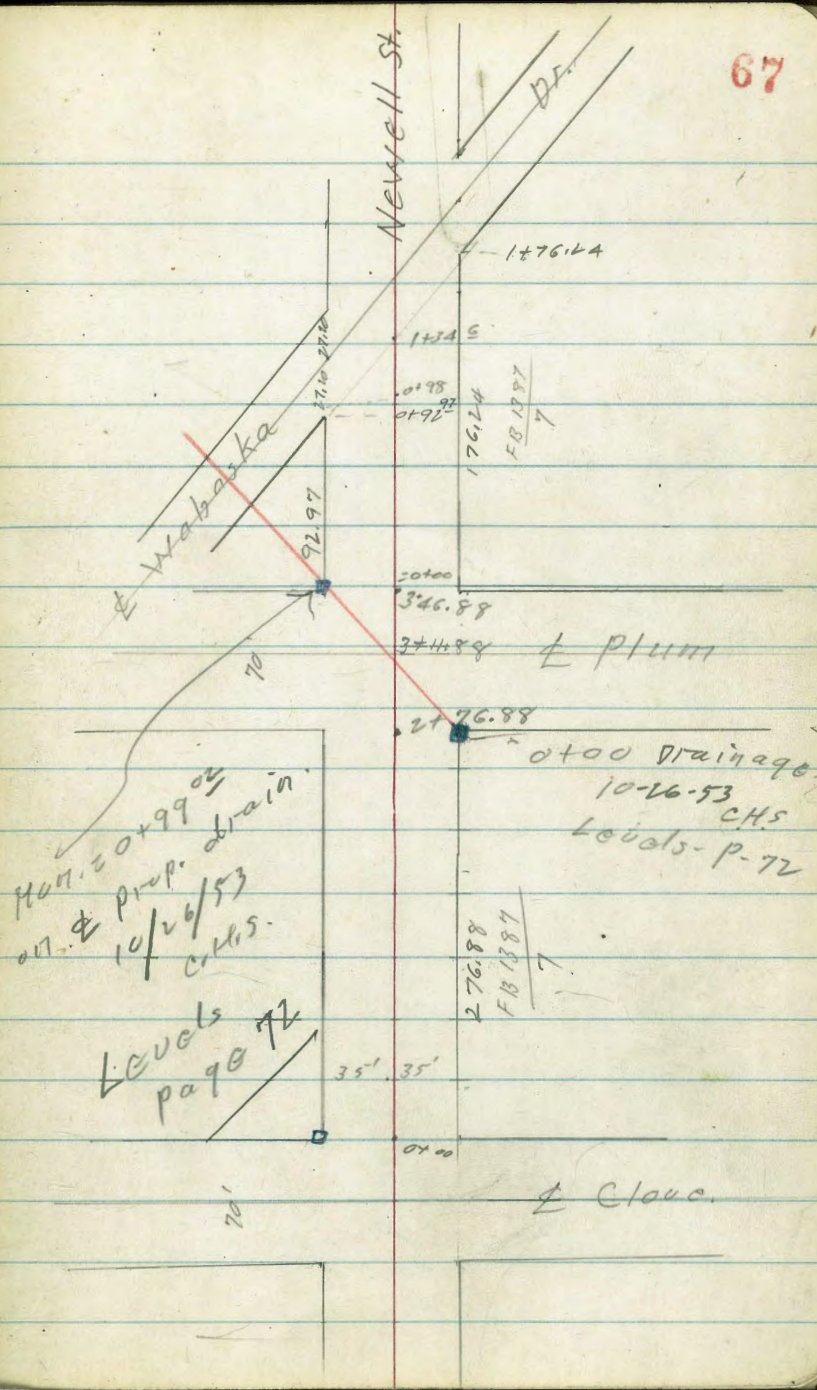 67
Newell St.
Dr.
1+76.24
1+34 5
27.10
27.10
0+98
0+92 97
176.24
FB 1387
7
℄ Wabaska
92.97
=0+00
3+46.88
3+11.88
℄ Plum
70'
2+76.88
0+00 Drainage
10-26-53
C.H.S
Levels - P-72
Mon. = 0+99 02
on ℄ prop. drain.
10/26/53
C.H.S.
Levels
page 72
276.88
FB 1387
7
35' 35'
0+00
70'
℄ Clove.